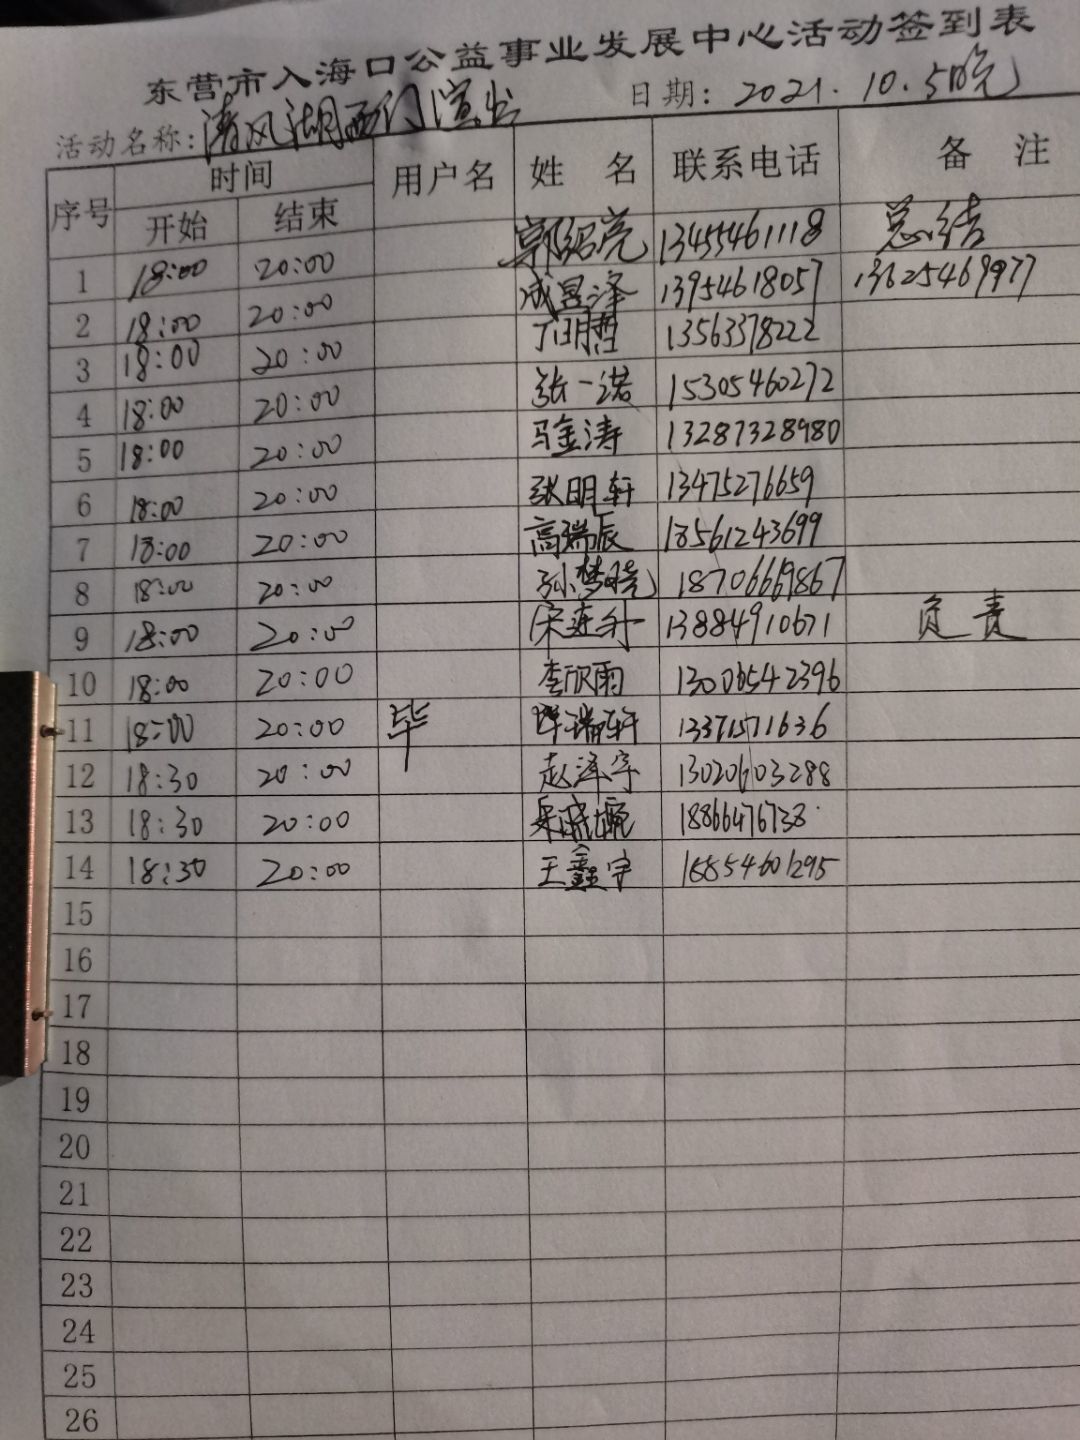 东营市入海口公益事业发展中心活动签到表
活动名称: 清风湖西门演出 日期: 2021.10.5晚
序号 时间 用户名 姓 名 联系电话 备 注
开始 结束
1 18:00 20:00 郭绍亮 13455461118 总结
2 18:00 20:00 成昱泽 13954618057 13625469977
3 18:00 20:00 丁明哲 13563378222
4 18:00 20:00 张一诺 15305460272
5 18:00 20:00 马金涛 13287328980
6 18:00 20:00 张明轩 13475276659
7 18:00 20:00 高瑞辰 18561243699
8 18:00 20:00 孙梦晓 18706669867
9 18:00 20:00 宋连升 13884910671 负责
10 18:00 20:00 李欣雨 13006542396
11 18:00 20:00 毕 毕瑞轩 13371571636
12 18:30 20:00 赵泽宇 13020603288
13 18:30 20:00 18866476738
14 18:30 20:00 王鑫宇 18854601295
15
16
17
18
19
20
21
22
23
24
25
26